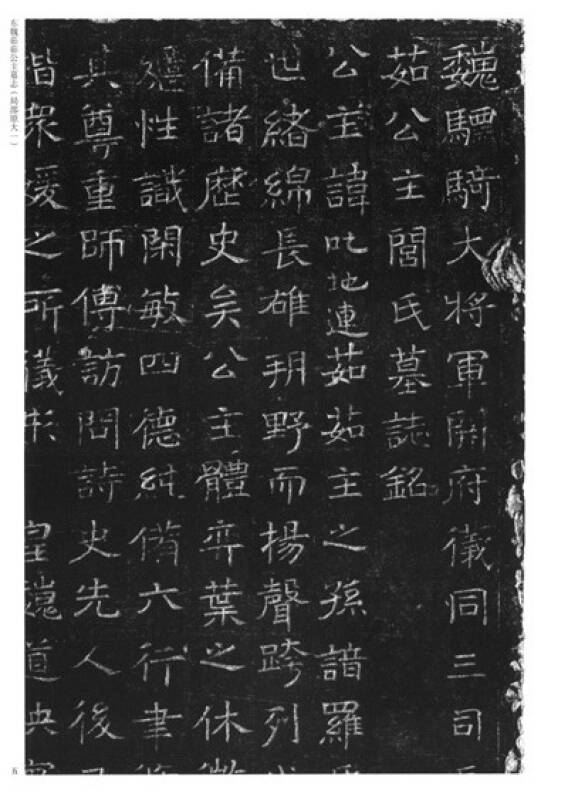 魏驃騎大將軍開府儀同三司
茹公主閭氏墓誌銘
公主諱叱地連茹茹主之孫諳羅
世緒綿長雄朔野而揚聲跨列
備諸歷史矣公主體弈葉之休
性識閑敏四德純備六行聿
其尊重師傅訪問詩史先人後
偕衆媛之所儀形 皇魏道映
东魏茹茹公主墓志（局部原大一）
五